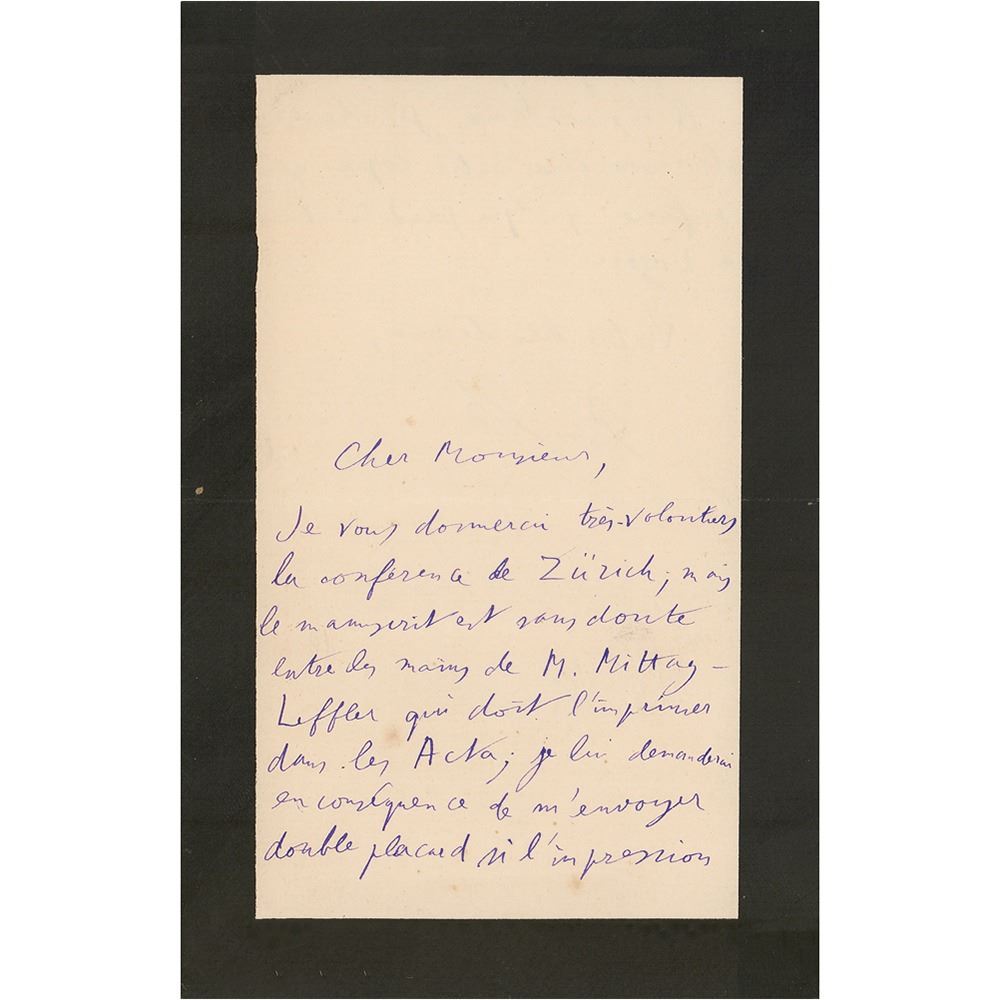 Cher Monsieur,
Je vous donnerai très-volontiers
la conférence de Zürich; mais
le manuscrit est sans doute
entre les mains de M. Mittag-
Leffler qui doit l'imprimer
dans les Acta; je lui demanderai
en conséquence de m'envoyer
double placard si l'impression